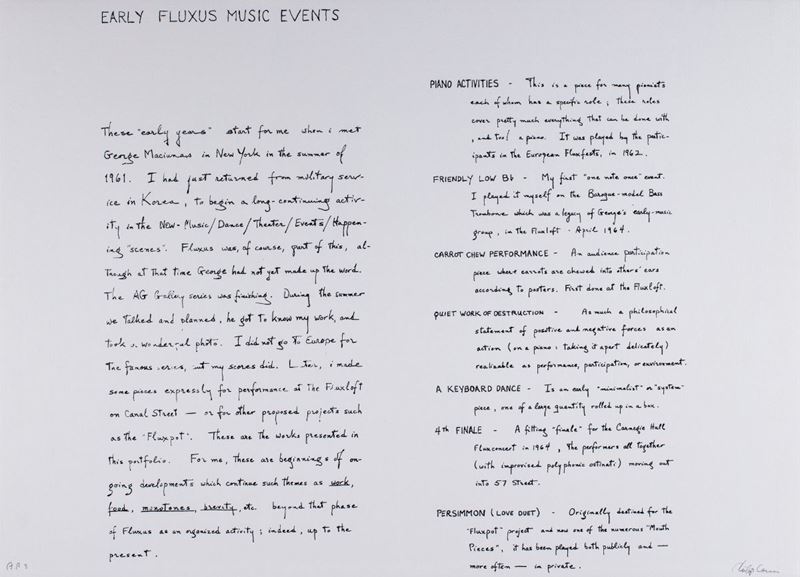 EARLY FLUXUS MUSIC EVENTS
These "early years" start for me when i met
George Maciunas in New York in the summer of
1961. I had just returned from military serv-
ice in Korea, to begin a long-continuing activ-
ity in the New-Music/Dance/Theater/Events/Happen-
ing "scenes". Fluxus was, of course, part of this, al-
though at that time George had not yet made up the word.
The AG Gallery series was finishing. During the summer
we talked and planned, he got to know my work, and
took a wonderful photo. I did not go to Europe for
the famous series, but my scores did. Later, i made
some pieces expressly for performance at The Fluxloft
on Canal Street — or for other proposed projects such
as the "Fluxpot". These are the works presented in
this portfolio. For me, these are beginnings of on-
going developments which continue such themes as work,
food, monotones, brevity, etc. beyond that phase
of Fluxus as an organized activity; indeed, up to the
present.
PIANO ACTIVITIES - This is a piece for many pianists
each of whom has a specific role; these roles
cover pretty much everything that can be done with
, and to! a piano. It was played by the partic-
ipants in the European Fluxfests, in 1962.
FRIENDLY LOW B♭ - My first "one note once" event.
I played it myself on the Baroque-model Bass
Trombone which was a legacy of George's early-music
group, in the Fluxloft - April 1964.
CARROT CHEW PERFORMANCE - An audience participation
piece where carrots are chewed into others' ears
according to posters. First done at the Fluxloft.
QUIET WORK OF DESTRUCTION - As much a philosophical
statement of positive and negative forces as an
action (on a piano: taking it apart delicately)
realizable as performance, participation, or environment.
A KEYBOARD DANCE - Is an early "minimalist" or "system"
piece, one of a large quantity rolled up in a box.
4th FINALE - A fitting "finale" for the Carnegie Hall
Fluxconcert in 1964, the performers all together
(with improvised polyphonic ostinati) moving out
into 57 Street.
PERSIMMON (LOVE DUET) - Originally destined for the
"Fluxpot" project and now one of the numerous "Mouth
Pieces", it has been played both publicly and —
more often — in private.
Philip Corner